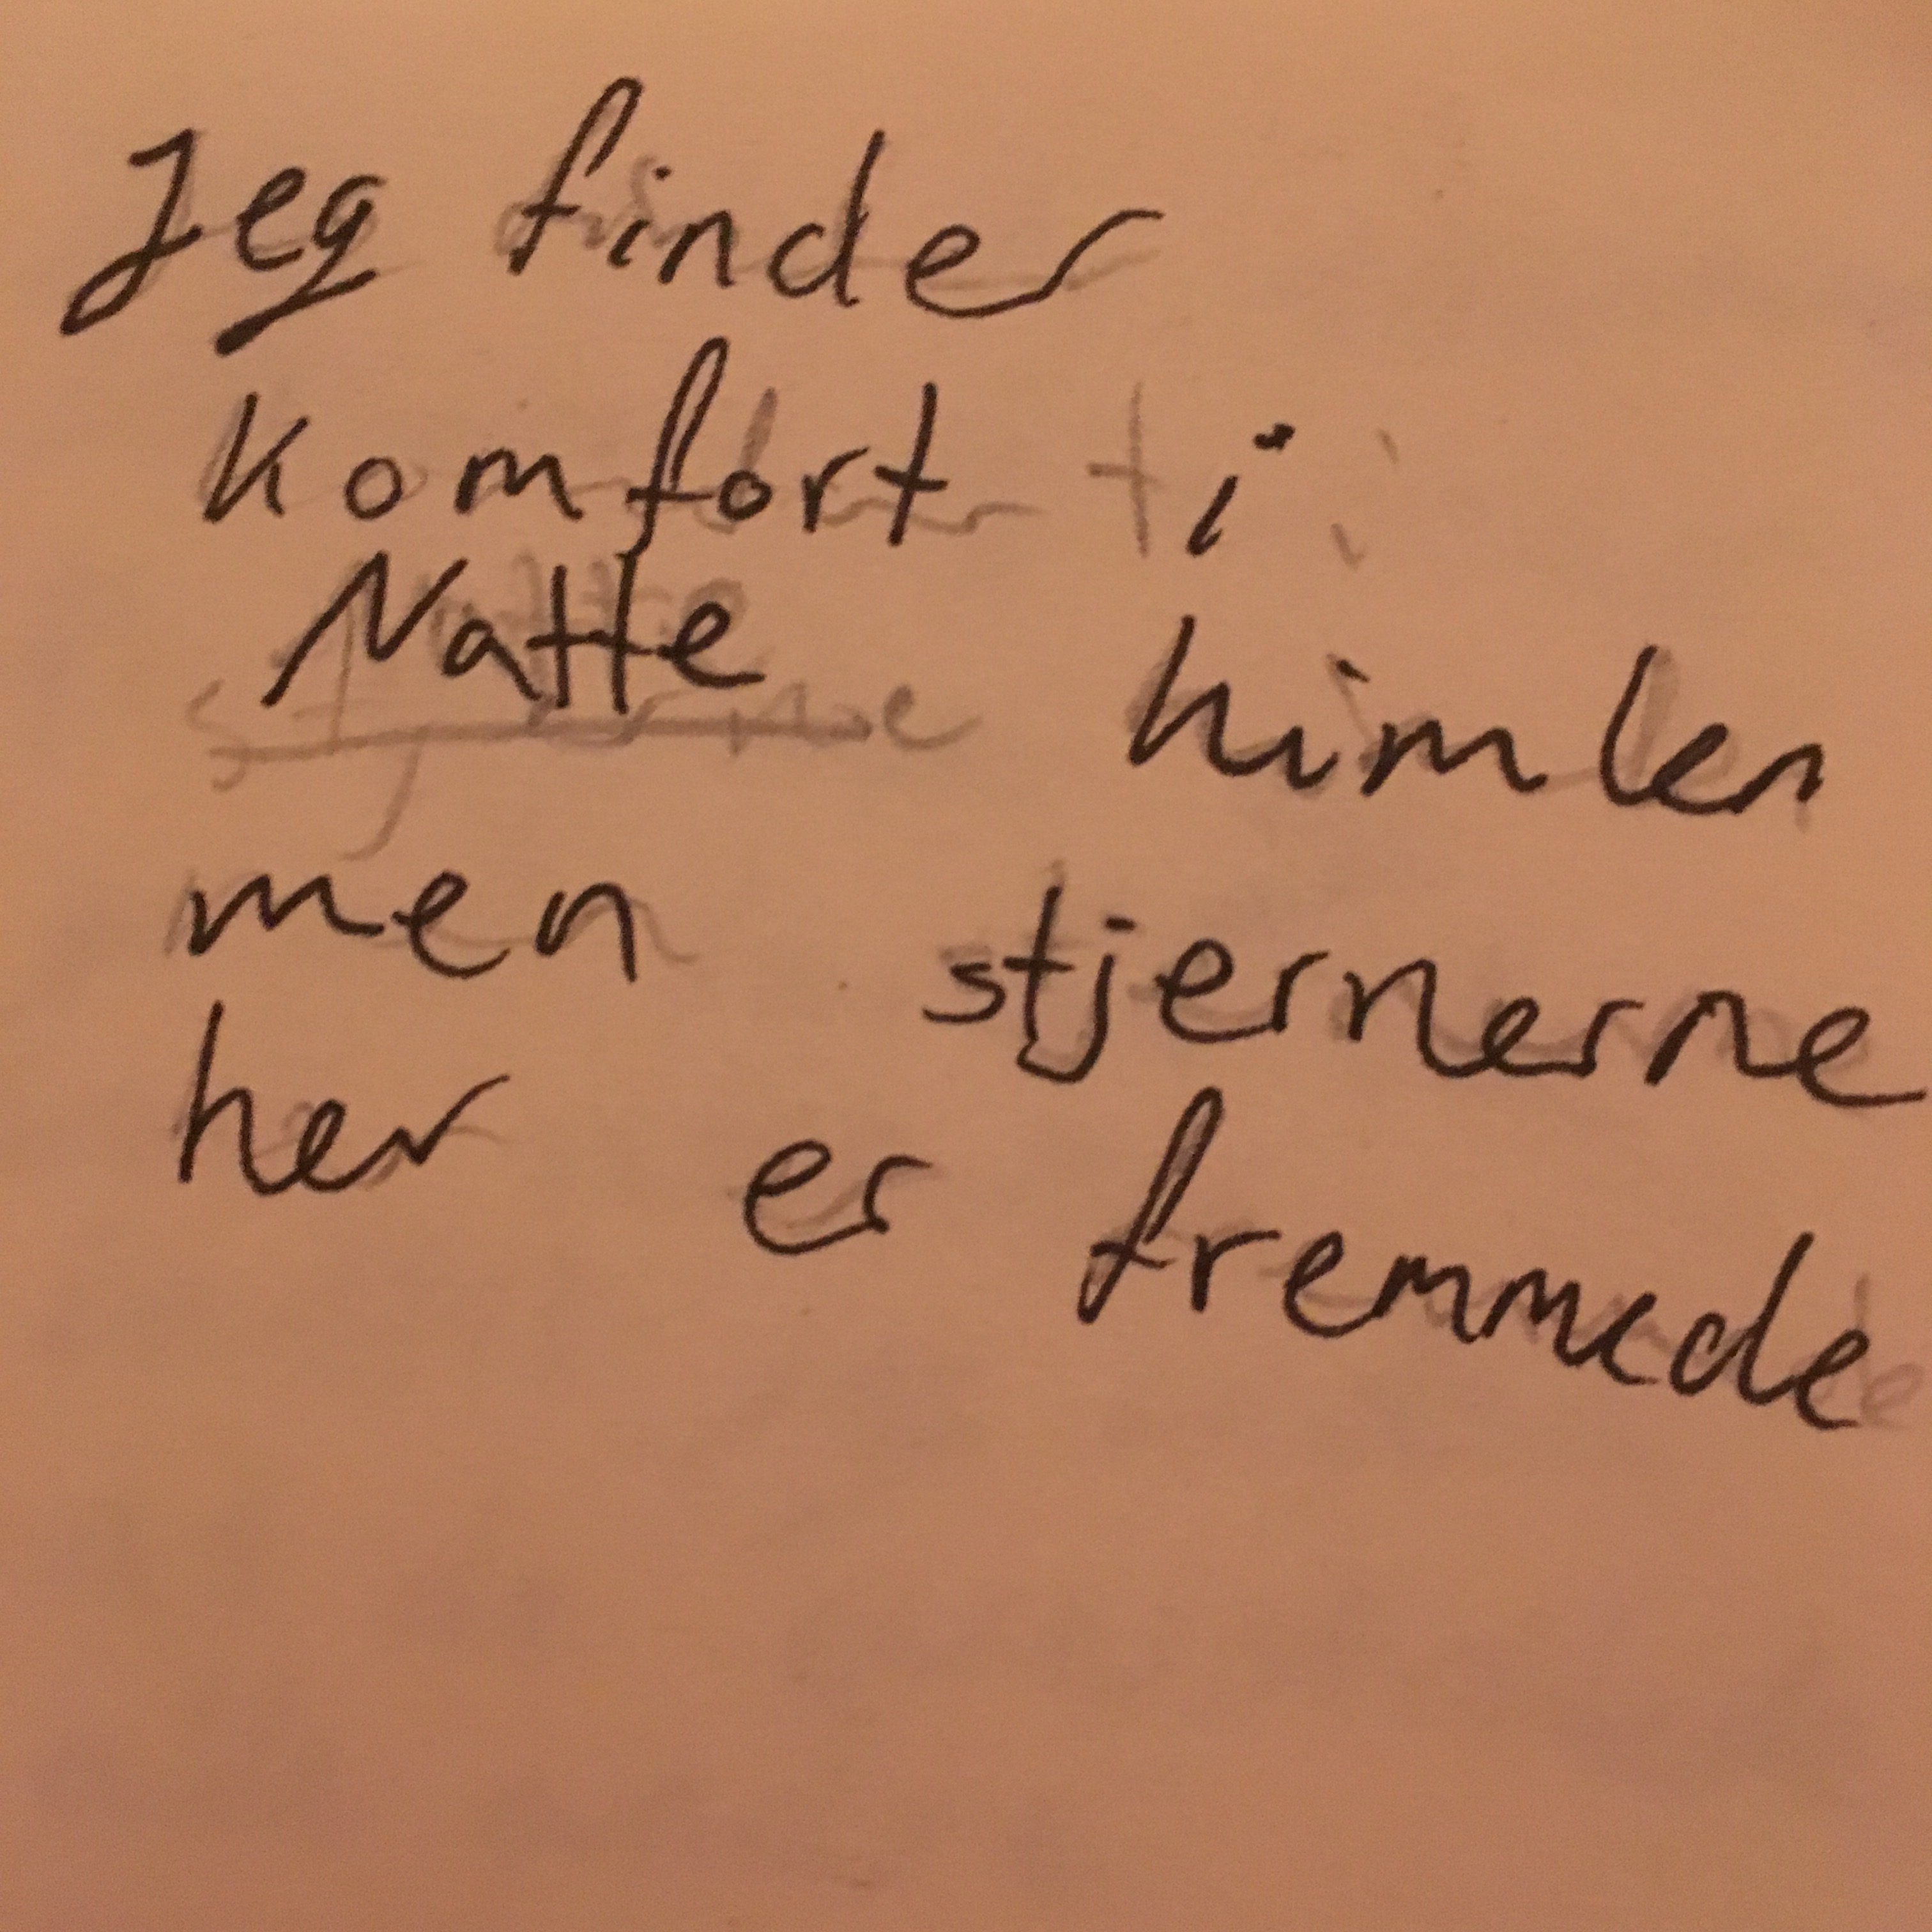 Jeg finder
Komfort i
Natte himlen
men stjernerne
her er fremmede